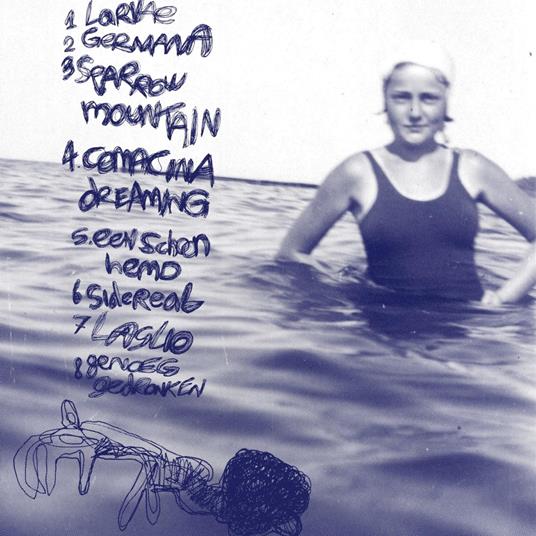 1 Larvae
2 Germana
3 Sparrow
mountain
4. comacina
dreaming
5. een schon
hemd
6 sidereal
7 Laglio
8 genoeg
gedronken